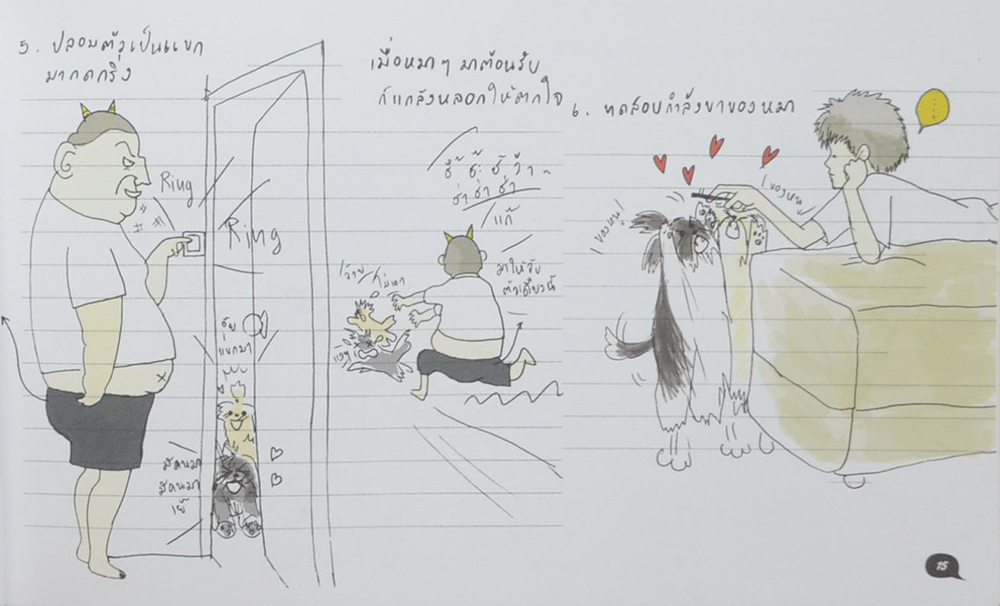 5. ปลอมตัวเป็นแขก
มากดกริ่ง
Ring
Ring
อุ๊ย
แขกมา
มัดหมา
มัดหมา
เย้
เมื่อหมาๆ มาต้อนรับ
ก็แกล้งหลอกให้ตกใจ
ฮ่า ฮ่า ฮ่า
แก๊
มาให้จับ
ตัวเดี๋ยวนี้
ว้าย
ไม่เอา
6. ทดสอบกำลังขาของหมา
ของหนู
ของหนู
15